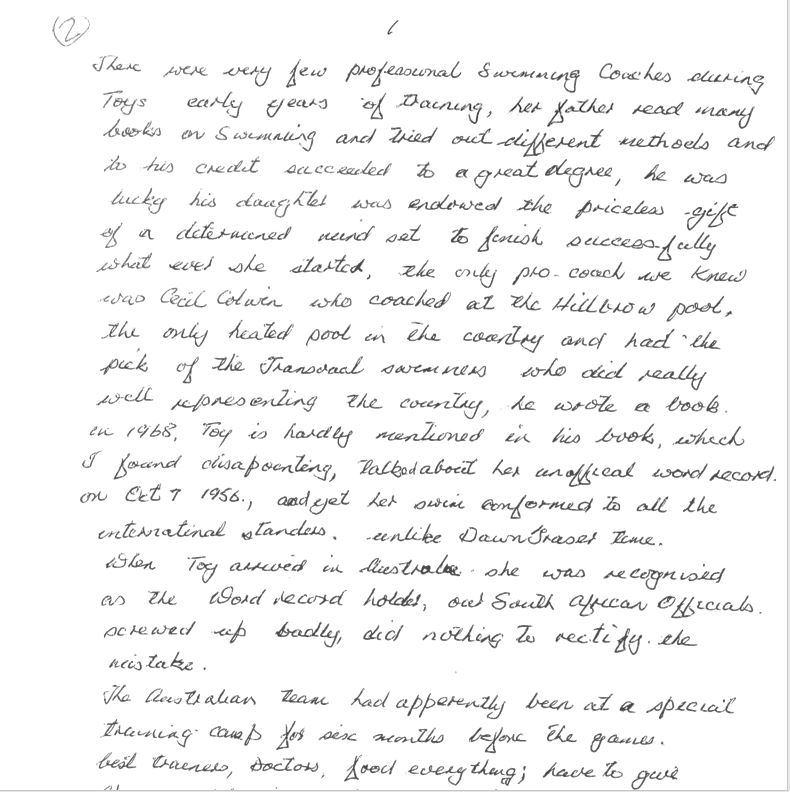 2
There were very few professional Swimming Coaches during
Toys early years of training, her father read many
books on Swimming and tried out different methods and
to his credit succeeded to a great degree, he was
lucky his daughter was endowed the priceless gift
of a determined mind set to finish successfully
what ever she started, the only pro-coach we knew
was Cecil Colwin who coached at the Hillbrow pool,
the only heated pool in the country and had the
pick of the Transvaal swimmers who did really
well representing the country, he wrote a book.
in 1968, Toy is hardly mentioned in his book, which
I found disapointing, Talked about her unoffical word record.
on Oct 7 1956., and yet her swim conformed to all the
internatinal standers. unlike Dawn Fraser Time.
When Toy arrived in Australia she was recognised
as the Word record holder, our South African Officials.
screwed up badly, did nothing to rectify. the
mistake.
The Australian Team had apparently been at a special
training camp for six months before the games.
best trainers, Doctors, food everything; have to give